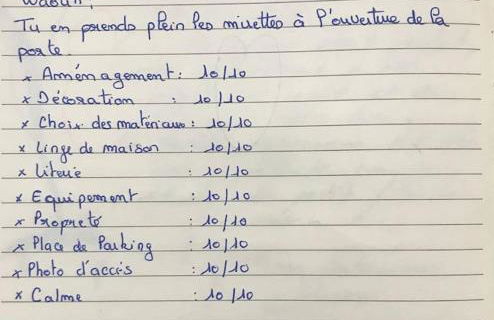 Waouh,
Tu en prends plein les mirettes à l'ouverture de la
porte.
x Aménagement : 10/10
x Décoration : 10/10
x Choix des matériaux : 10/10
x Linge de maison : 10/10
x Literie : 10/10
x Equipement : 10/10
x Propreté : 10/10
x Place de Parking : 10/10
x Photo d'accès : 10/10
x Calme : 10/10